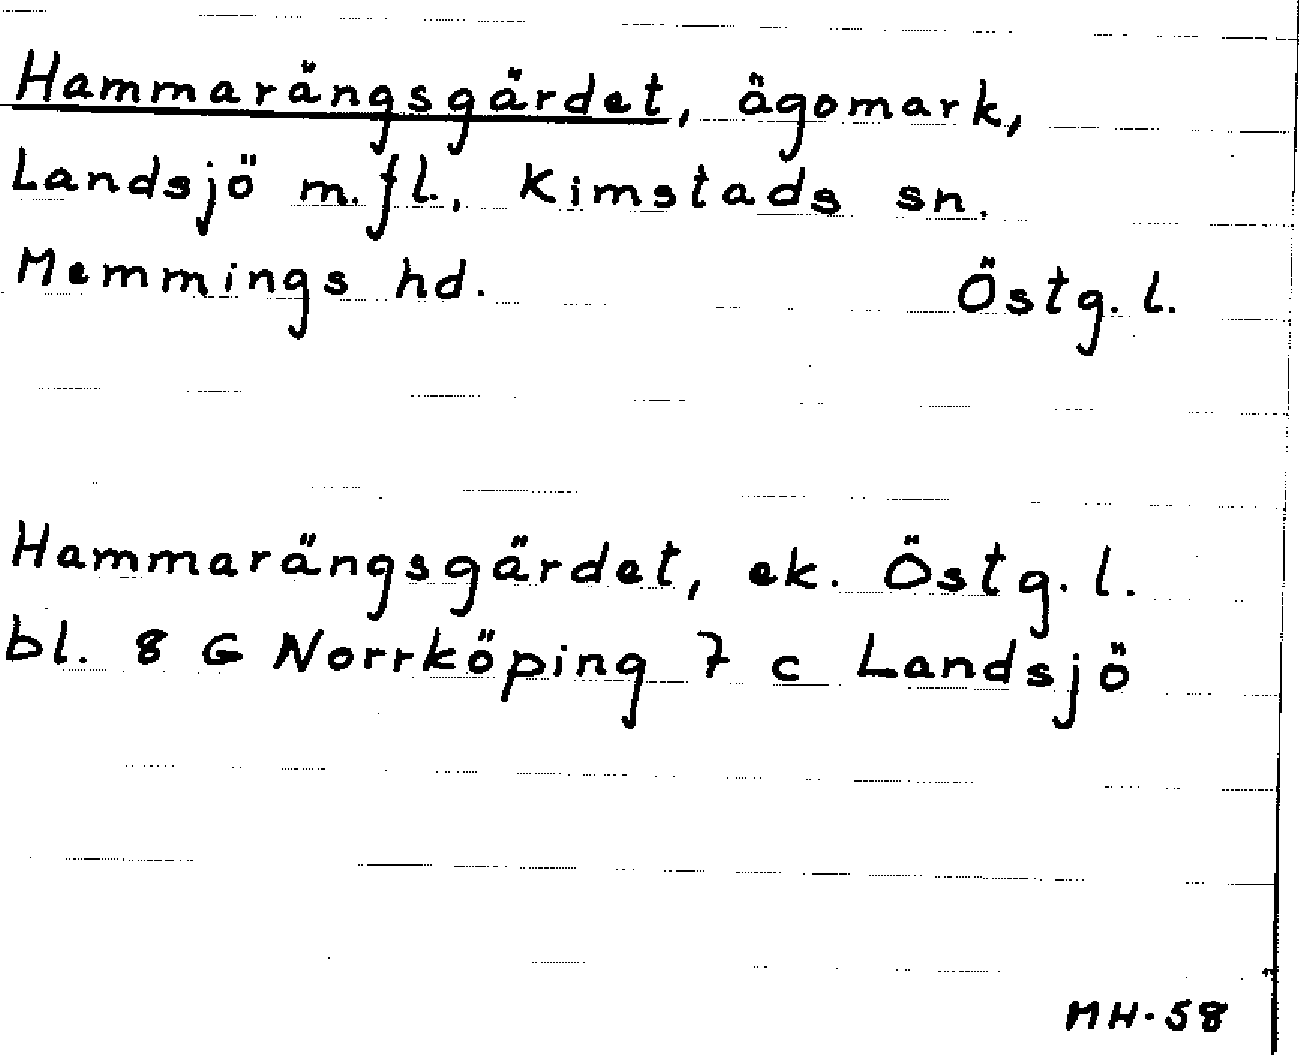 Hammarängsgärdet, ägomark,
Landsjö m.fl., Kimstads sn.
Memmings hd. Östg. l.
Hammarängsgärdet, ek. Östg. l.
bl. 8 G Norrköping 7 c Landsjö
MH-58